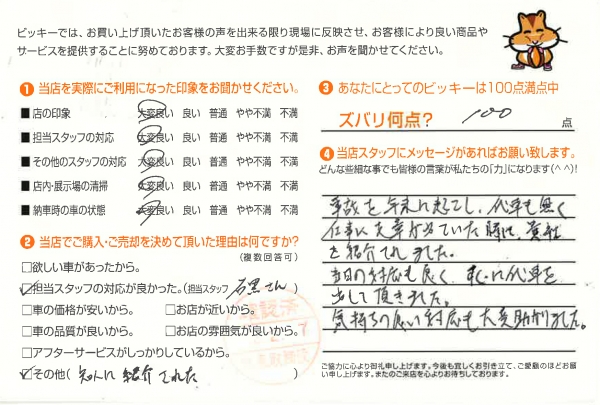 ビッキーでは、お買い上げ頂いたお客様の声を出来る限り現場に反映させ、お客様により良い商品や
サービスを提供することに努めております。大変お手数ですが是非、お声を聞かせてください。
1 当店を実際にご利用になった印象をお聞かせください。
■ 店の印象 大変良い 良い 普通 やや不満 不満
■ 担当スタッフの対応 大変良い 良い 普通 やや不満 不満
■ その他のスタッフの対応 大変良い 良い 普通 やや不満 不満
■ 店内・展示場の清掃 大変良い 良い 普通 やや不満 不満
■ 納車時の車の状態 大変良い 良い 普通 やや不満 不満
2 当店でご購入・ご売却を決めて頂いた理由は何ですか?
(複数回答可)
□欲しい車があったから。
☑担当スタッフの対応が良かった。(担当スタッフ 石黒さん)
□車の価格が安いから。 □お店が近いから。
□車の品質が良いから。 □お店の雰囲気が良いから。
□アフターサービスがしっかりしているから。
☑その他(知人に紹介された)
3 あなたにとってのビッキーは100点満点中
ズバリ何点? 100 点
4 当店スタッフにメッセージがあればお願い致します。
どんな些細な事でも皆様の言葉が私たちの「力」になります(^^)!
事故を年末に起こし、代車も無く
仕事に支障が出ていた時に、貴社
を紹介されました。
当日の対応も良く、すぐに代車を
出して頂きました。
気持ちの良い対応も大変助かりました。
ご協力に心より御礼申し上げます。今後も宜しくお引き立て、ご愛顧のほどお願い申し上げます。またのご来店を心よりお待ちしております。